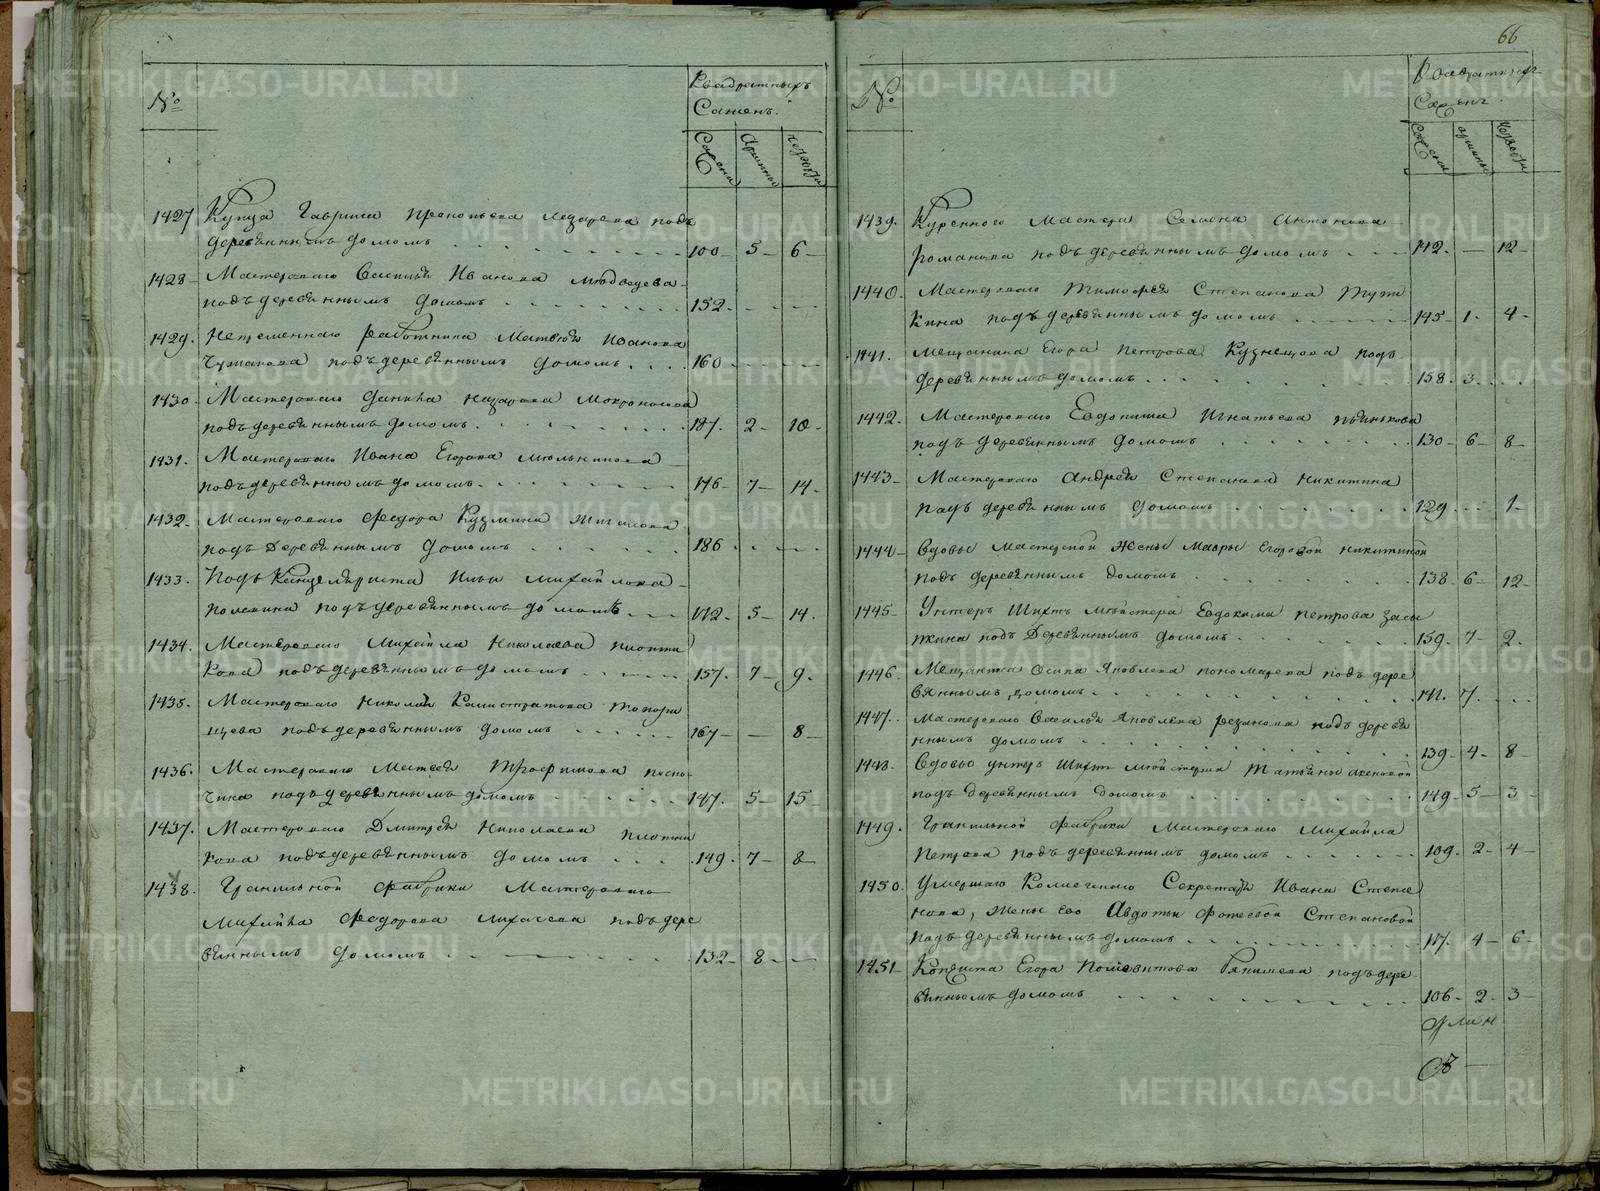 №
Квадратныхъ
Саженъ.
Сажени
Аршины
четверти
1427. Купца Гаврила Прокопьева Лазарева подъ
деревяннымъ домомъ 100 5 6
1428 Мастероваго Василья Иванова Медведева
подъ деревяннымъ домомъ 152
1429. Непременнаго работника Матвея Иванова
подъ деревяннымъ домомъ 160
1430. Мастероваго Данила Назарова Мокроносова
подъ деревяннымъ домомъ 187. 2 10
1431. Мастероваго Ивана Егорова Мельникова
подъ деревяннымъ домомъ 176 7 14
1432. Мастероваго Федора Кузмина
подъ деревяннымъ домомъ 186
1433. Подъ Канцеляриста Ильи Михайлова
Полевина подъ деревяннымъ домомъ 112 5 14
1434. Мастероваго Михайла Николаева Плотни
кова подъ деревяннымъ домомъ 157. 7 9
1435. Мастероваго Николая Калистратова Топори
щева подъ деревяннымъ домомъ 167 8
1436. Мастероваго Матвея Трофимова
подъ деревяннымъ домомъ 147. 5 15
1437. Мастероваго Дмитрея Николаева Плотни
кова подъ деревяннымъ домомъ 149. 7 8
1438. Гранильной фабрики Мастероваго
Михайла Федорова Лихачева подъ дере
вяннымъ домомъ 132 8
66
№
Квадратныхъ
Саженъ.
Сажени
аршины
четверти
1439. Куреннаго мастера Семена Антонова
Романова подъ деревяннымъ домомъ 112. 12
1440. Мастероваго Тимофея Степанова
кина подъ деревяннымъ домомъ 145 1. 4
1441. Мещанина Егора Петрова Кузнецова подъ
деревяннымъ домомъ 158. 3
1442. Мастероваго Евдокима Игнатьева Пьянкова
подъ деревяннымъ домомъ 130 6 8
1443 Мастероваго Андрея Степанова Никитина
подъ деревяннымъ домомъ 129 1
1444 Вдовы мастерской жены Мавры Егоровой Никитиной
подъ деревяннымъ домомъ 138 6 12
1445 Унтеръ Шихтъ мейстера Евдокима Петрова Засы
пкина подъ деревяннымъ домомъ 159. 7 2
1446. Осипа Яковлева Пономарева подъ дере
вяннымъ домомъ 141. 7
1447. Мастероваго Василья Яковлева Резанова подъ деревя
ннымъ домомъ 139 4 8
1448. Вдовы унтеръ Шихтъ мейстерши Татьяны
подъ деревяннымъ домомъ 149 5 3
1449. Гранильной фабрики Мастероваго Михайла
Петрова подъ деревяннымъ домомъ 109. 2 4
1450. Умершаго Секретаря Ивана Степа
нова, жены его Авдотьи Фотеевой Степановой
подъ деревяннымъ домомъ 117. 4 6
1451 Копеиста Егора подъ дере
вяннымъ домомъ 106 2 3
METRIKI.GASO-URAL.RU